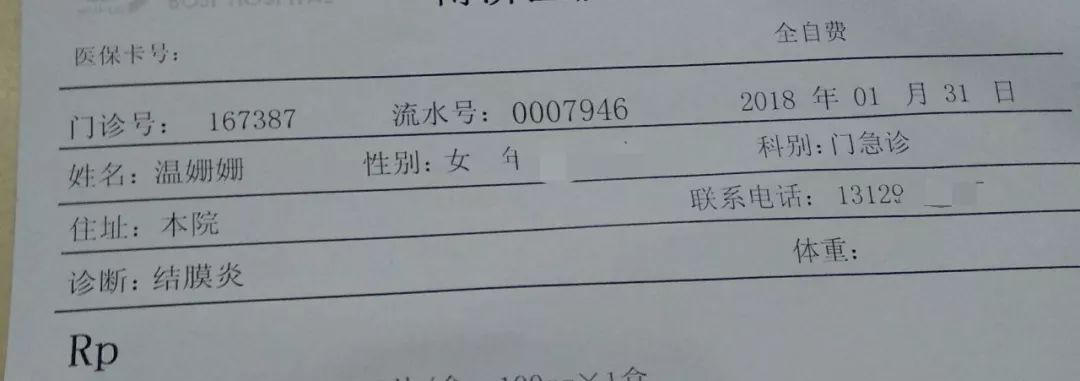 BOSI HOSPITAL
全自费
医保卡号：
门诊号： 167387 流水号：0007946 2018 年 01 月 31 日
姓名：温姗姗 性别：女 年 科别：门急诊
住址：本院 联系电话：13129
诊断：结膜炎 体重：
Rp